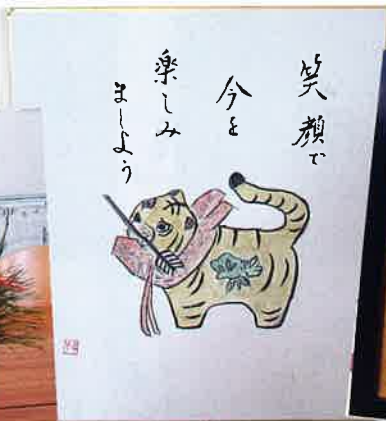 笑顔で
今を
楽しみ
ましょう